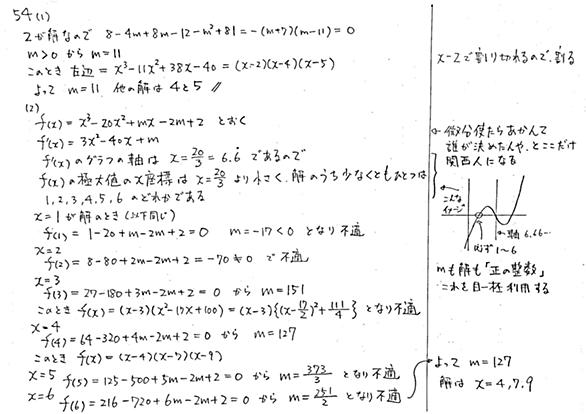 54(1)
2が解なので 8-4m+8m-12-m²+81=-(m+7)(m-11)=0
m>0 から m=11
このとき 左辺 = x³-11x²+38x-40=(x-2)(x-4)(x-5)
よって m=11 他の解は 4と5 //
(2)
f(x)=x³-20x²+mx-2m+2 とおく
f'(x)=3x²-40x+m
f'(x)のグラフの軸は x=20/3=6.6̇ であるので
f(x)の極大値のx座標は x=20/3 より小さく、解のうち少なくともひとつは
1,2,3,4,5,6 のどれかである
x=1が解のとき(以下同じ)
f(1)=1-20+m-2m+2=0 m=-17<0 となり不適
x=2
f(2)=8-80+2m-2m+2=-70≠0 で 不適
x=3
f(3)=27-180+3m-2m+2=0 から m=151
このとき f(x)=(x-3)(x²-17x+100)=(x-3){(x-17/2)²+111/4} となり不適
x=4
f(4)=64-320+4m-2m+2=0 から m=127
このとき f(x)=(x-4)(x-7)(x-9)
x=5 f(5)=125-500+5m-2m+2=0 から m=373/3 となり不適
x=6 f(6)=216-720+6m-2m+2=0 から m=251/2 となり不適
x-2で割り切れるので、割る
微分使たらあかんて
誰が決めたんや、とここだけ
関西人になる
こんな
イメージ
軸 6.66…
必ず 1~6
mも解も「正の整数」
これを目一杯利用する
よって m=127
解は x=4,7,9